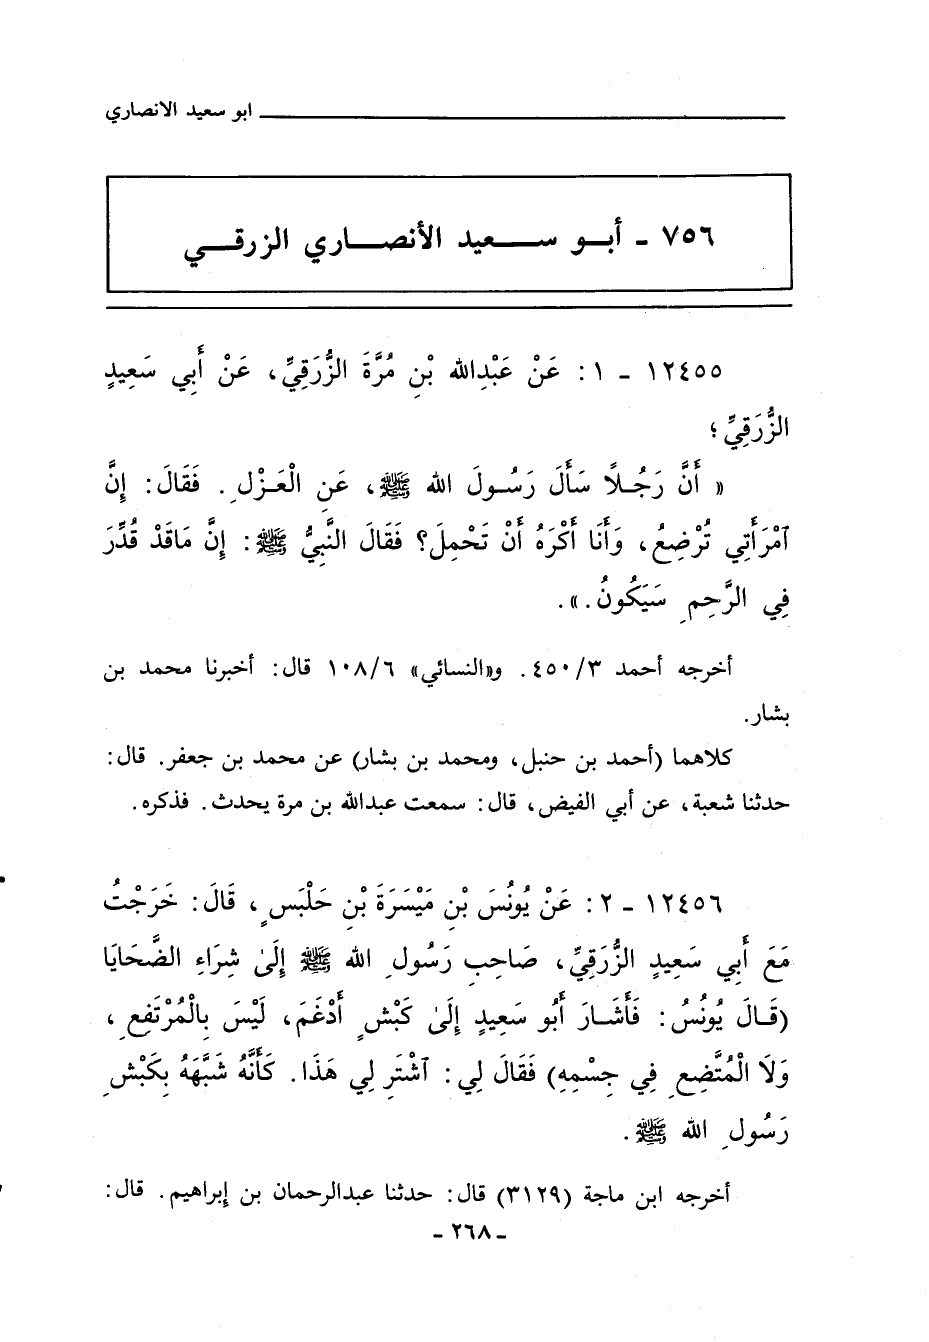 ابو سعيد الانصاري
٧٥٦ - أبو سعيد الأنصاري الزرقي
١٢٤٥٥ - ١ : عَنْ عَبْدِالله بْنِ مُرَّةَ الزُّرَقِيِّ، عَنْ أَبِي سَعِيدٍ
الزُّرَقِيِّ؛
« أَنَّ رَجُلاً سَأَلَ رَسُولَ الله ﷺ، عَنِ الْعَزْلِ. فَقَالَ: إِنَّ
ٱمْرَأَتِي تُرْضِعُ، وَأَنَا أَكْرَهُ أَنْ تَحْمِلَ؟ فَقَالَ النَّبِيُّ ﷺ: إِنَّ مَاقَدْ قُدِّرَ
فِي الرَّحِمِ سَيَكُونُ.».
أخرجه أحمد ٤٥٠/٣. و«النسائي» ١٠٨/٦ قال: أخبرنا محمد بن
بشار.
كلاهما (أحمد بن حنبل، ومحمد بن بشار) عن محمد بن جعفر. قال:
حدثنا شعبة، عن أبي الفيض، قال: سمعت عبدالله بن مرة يحدث. فذكره.
١٢٤٥٦ - ٢ : عَنْ يُونُسَ بْنِ مَيْسَرَةَ بْنِ حَلْبَسٍ، قَالَ: خَرَجْتُ
مَعَ أَبِي سَعِيدٍ الزُّرَقِيِّ، صَاحِبِ رَسُولِ الله ﷺ إِلَىٰ شِرَاءِ الضَّحَايَا
(قَالَ يُونُسُ: فَأَشَارَ أَبُو سَعِيدٍ إِلَىٰ كَبْشٍ أَدْغَمَ، لَيْسَ بِالْمُرْتَفِعِ،
وَلَا الْمُتَّضِعِ فِي جِسْمِهِ) فَقَالَ لِي: ٱشْتَرِ لِي هَذَا. كَأَنَّهُ شَبَّهَهُ بِكَبْشِ
رَسُولِ الله ﷺ.
أخرجه ابن ماجة (٣١٢٩) قال: حدثنا عبدالرحمان بن إبراهيم. قال:
- ٢٦٨ -